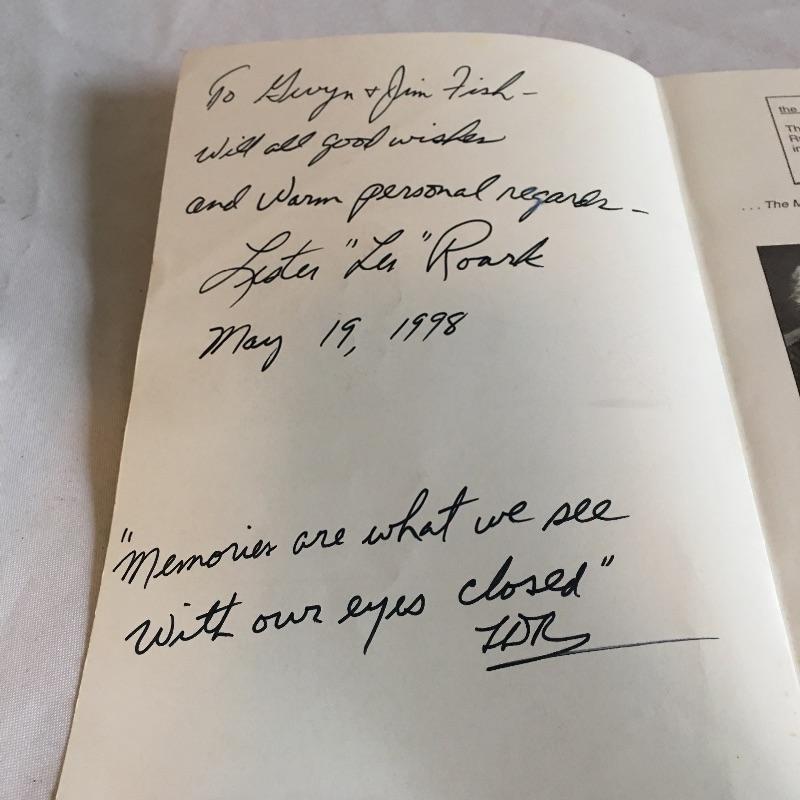 To Gwyn + Jim Fish –
With all good wishes
and warm personal regards –
Lester "Les" Roark
May 19, 1998
"Memories are what we see
With our eyes closed"
LDR
the
Th
R
in
... The M